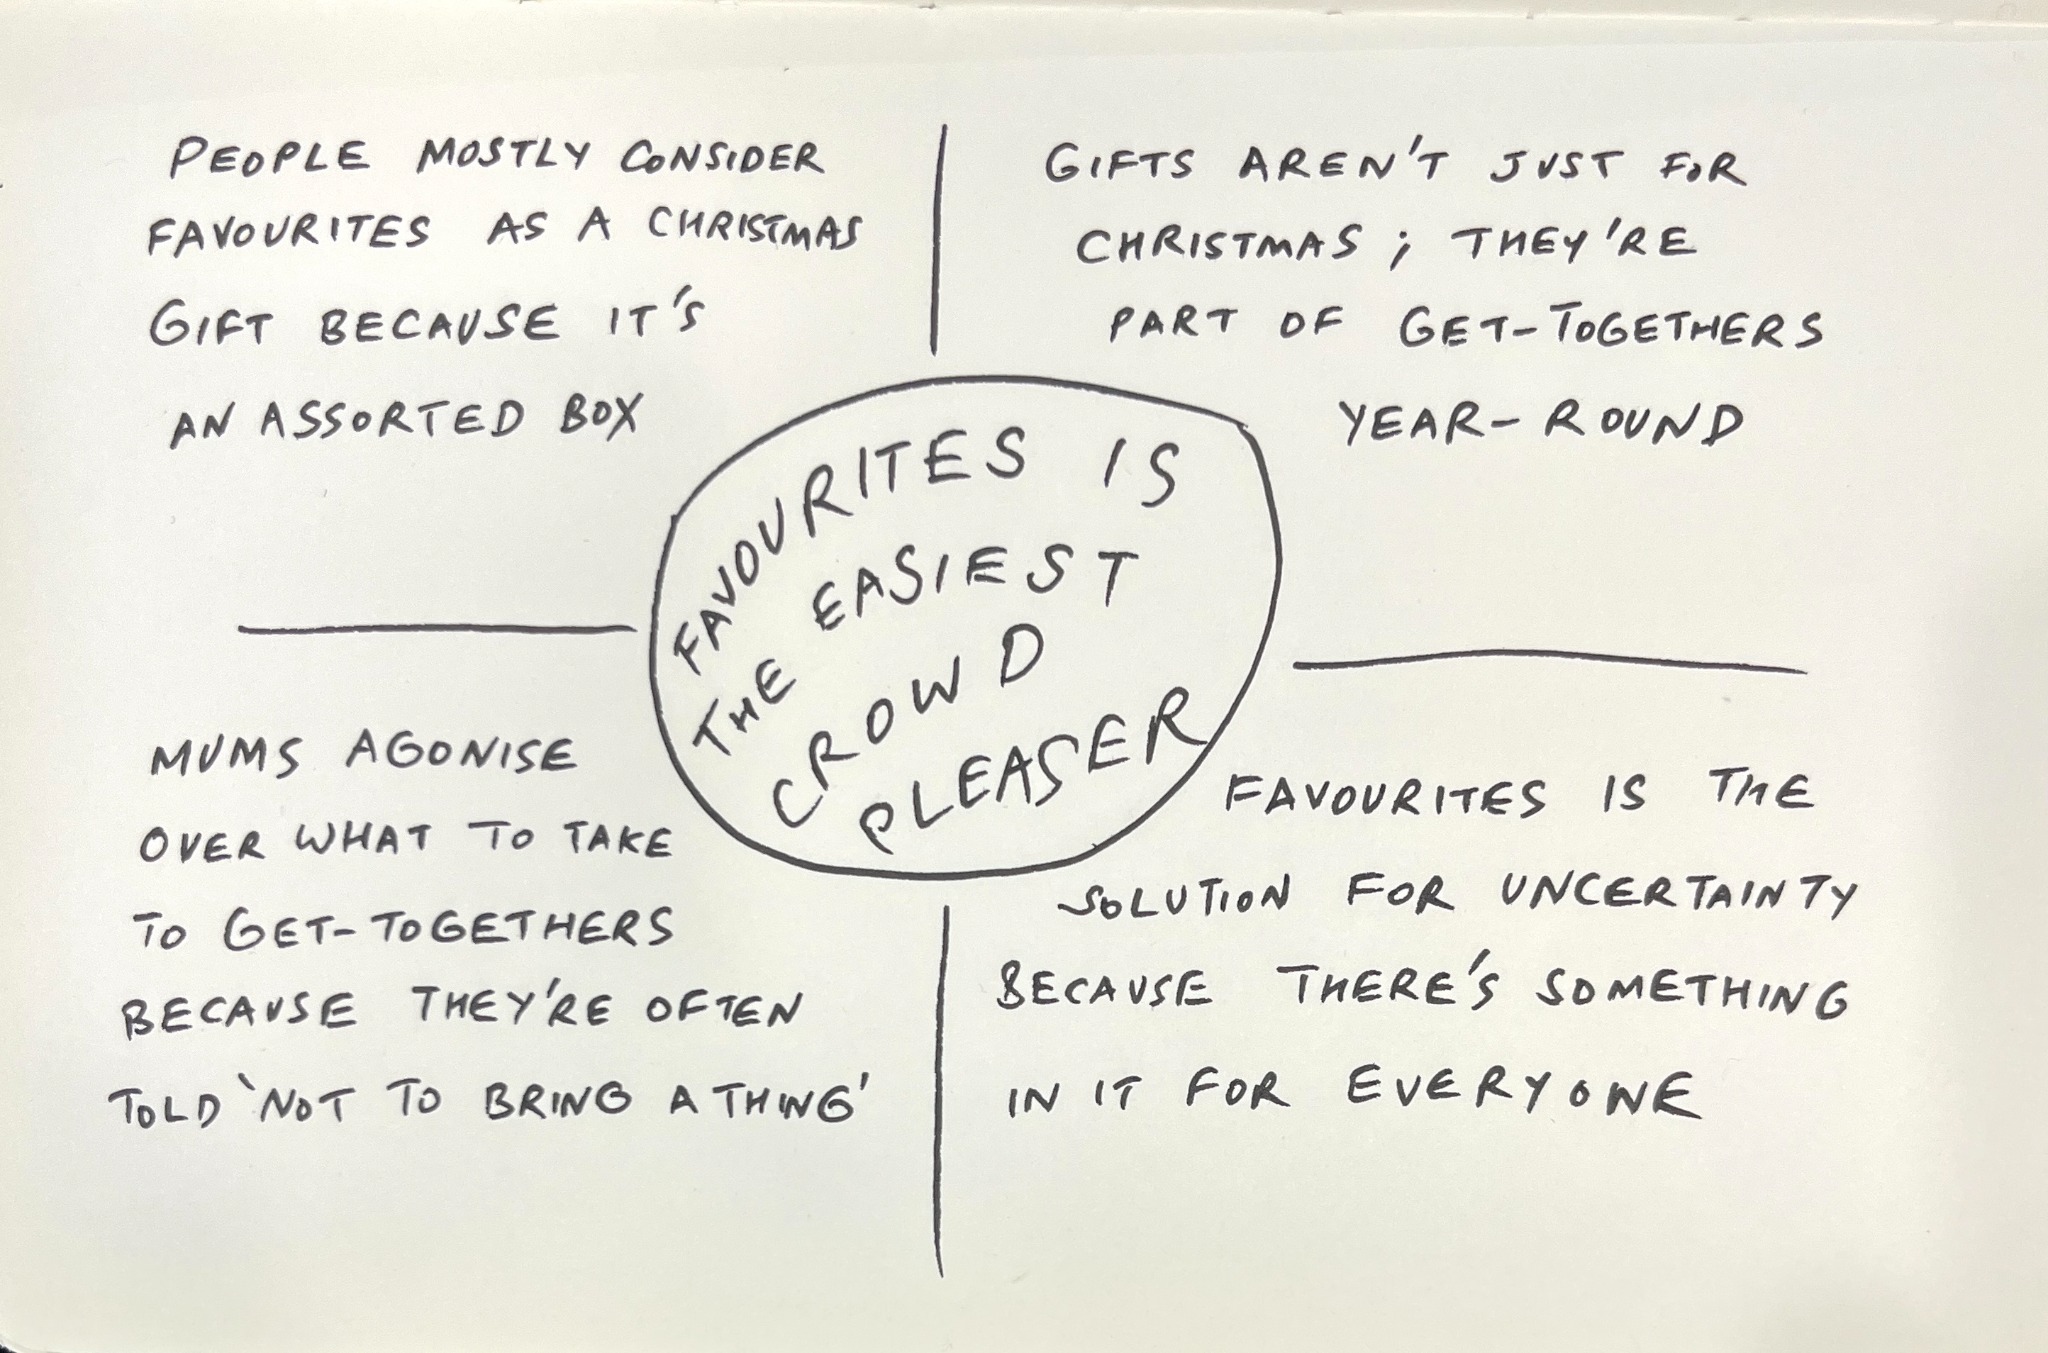 PEOPLE MOSTLY CONSIDER
FAVOURITES AS A CHRISTMAS
GIFT BECAUSE IT'S
AN ASSORTED BOX
GIFTS AREN'T JUST FOR
CHRISTMAS; THEY'RE
PART OF GET-TOGETHERS
YEAR-ROUND
FAVOURITES IS
THE EASIEST
CROWD
PLEASER
MUMS AGONISE
OVER WHAT TO TAKE
TO GET-TOGETHERS
BECAUSE THEY'RE OFTEN
TOLD 'NOT TO BRING A THING'
FAVOURITES IS THE
SOLUTION FOR UNCERTAINTY
BECAUSE THERE'S SOMETHING
IN IT FOR EVERYONE